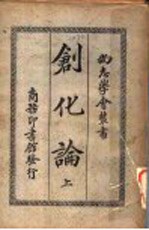 尚志學會叢書
創化論
上
商務印書館發行